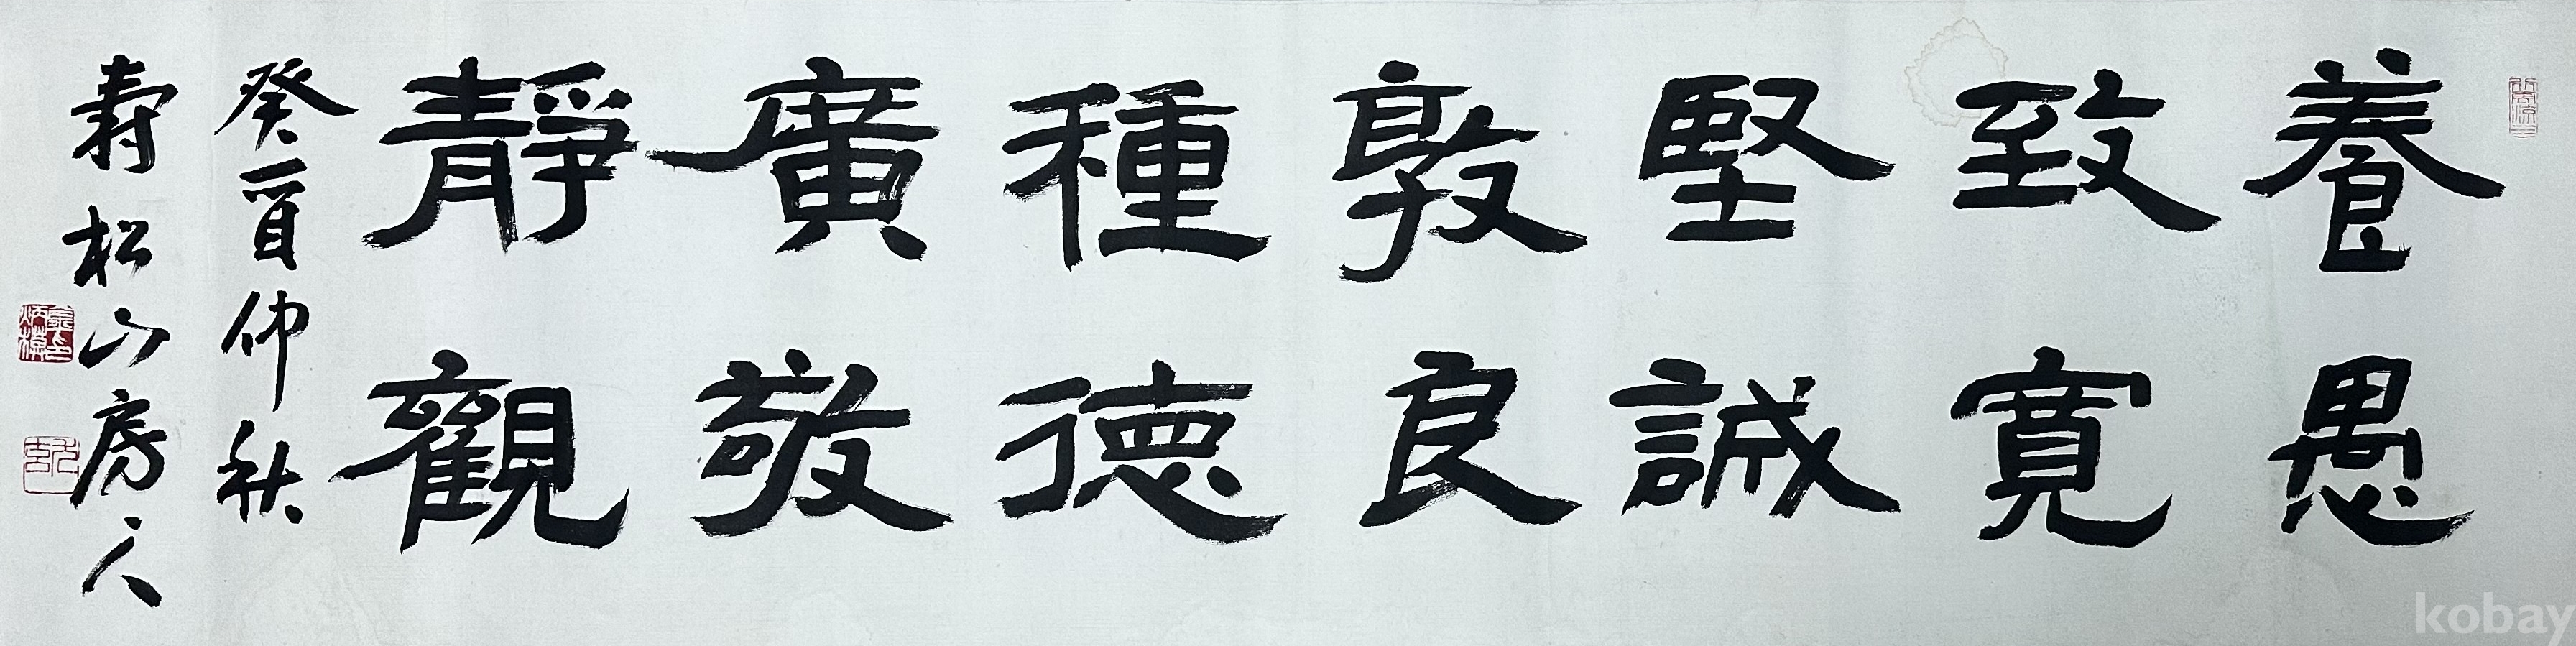 養愚
致寬
堅誠
敦良
種德
廣敬
靜觀
癸酉仲秋
壽松山房主人
kobay